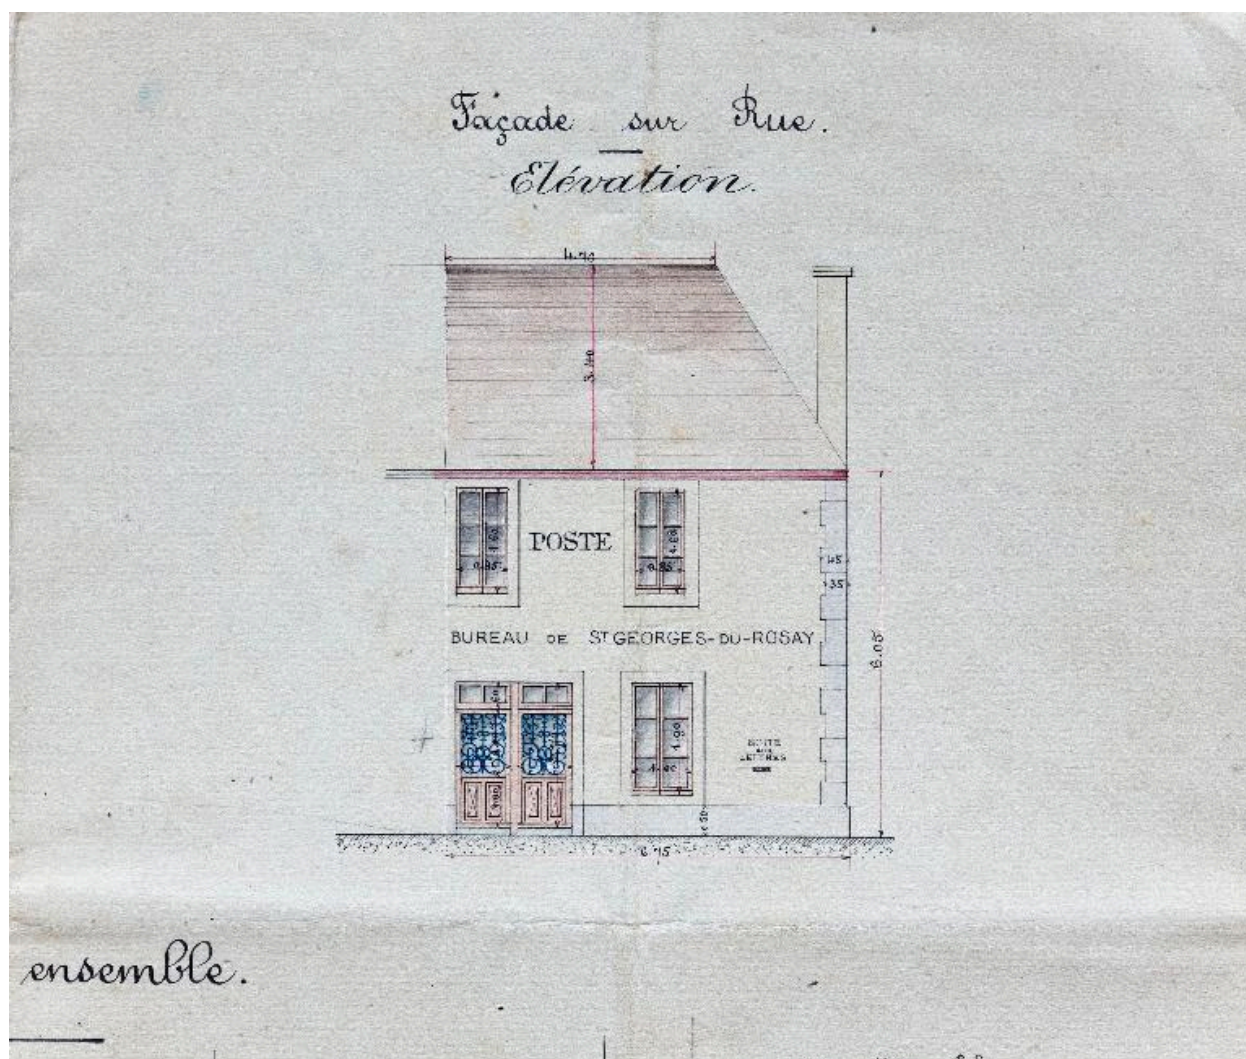 Façade sur Rue.
Elévation.
4.70
3.40
POSTE
1.60
0.85
1.60
0.85
45
35
BUREAU DE ST GEORGES-DU-ROSAY
6.05
1.90
1.00
BOITE
AUX
LETTRES
0.50
6.75
ensemble.